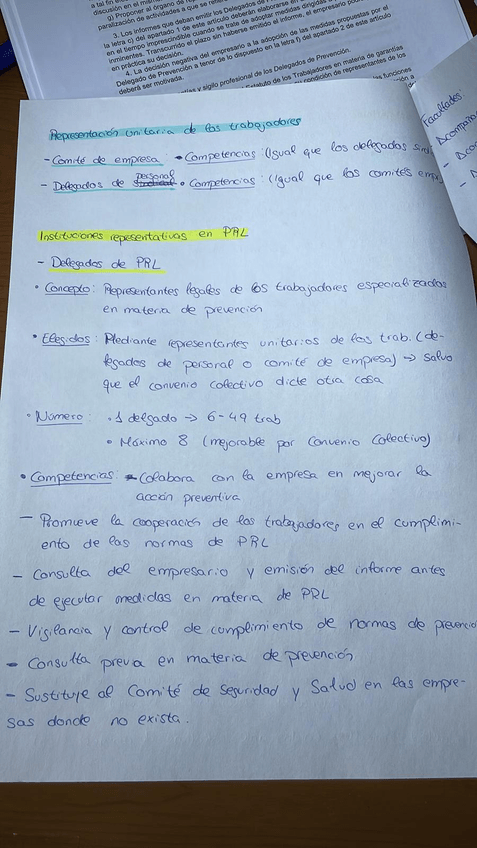 discusión en el
g) Promover al órgano de
paralización de actividades a que se
3. Los informes que deban emitir los Delegados de
la letra c) del apartado 1 de este artículo deberán elaborarse en
en el tiempo imprescindible cuando se trate de adoptar medidas dirigidas a
inminentes. Transcurrido el plazo sin haberse emitido el informe, el empresario
en práctica su decisión.
4. La decisión negativa del empresario a la adopción de las medidas propuestas por el
Delegado de Prevención a tenor de lo dispuesto en la letra f) del apartado 2 de este artículo
deberá ser motivada.
y sigilo profesional de los Delegados de Prevención.
Estatuto de los Trabajadores en materia de garantías
condición de representantes de los
funciones
Facultades:
Representación unitaria de los trabajadores
- Comité de empresa • Competencias: (Igual que los delegados
- Delegados de personal • Competencias: (Igual que los comités
Instituciones representativas en PRL
- Delegados de PRL
• Concepto: Representantes legales de los trabajadores especializados
en materia de prevención
• Elegidos: Mediante representantes unitarios de los trab. (de-
legados de personal o comité de empresa) → salvo
que el convenio colectivo dicte otra cosa
• Número: • 1 delgado → 6-49 trab
• Máximo 8 (mejorable por Convenio Colectivo)
• Competencias: - Colabora con la empresa en mejorar la
acción preventiva
- Promueve la cooperación de los trabajadores en el cumplimi-
ento de las normas de PRL
- Consulta del empresario y emisión del informe antes
de ejecutar medidas en materia de PRL
- Vigilancia y control de cumplimiento de normas de prevención
- Consulta previa en materia de prevención
- Sustituye al Comité de Seguridad y Salud en las empre-
sas donde no exista.